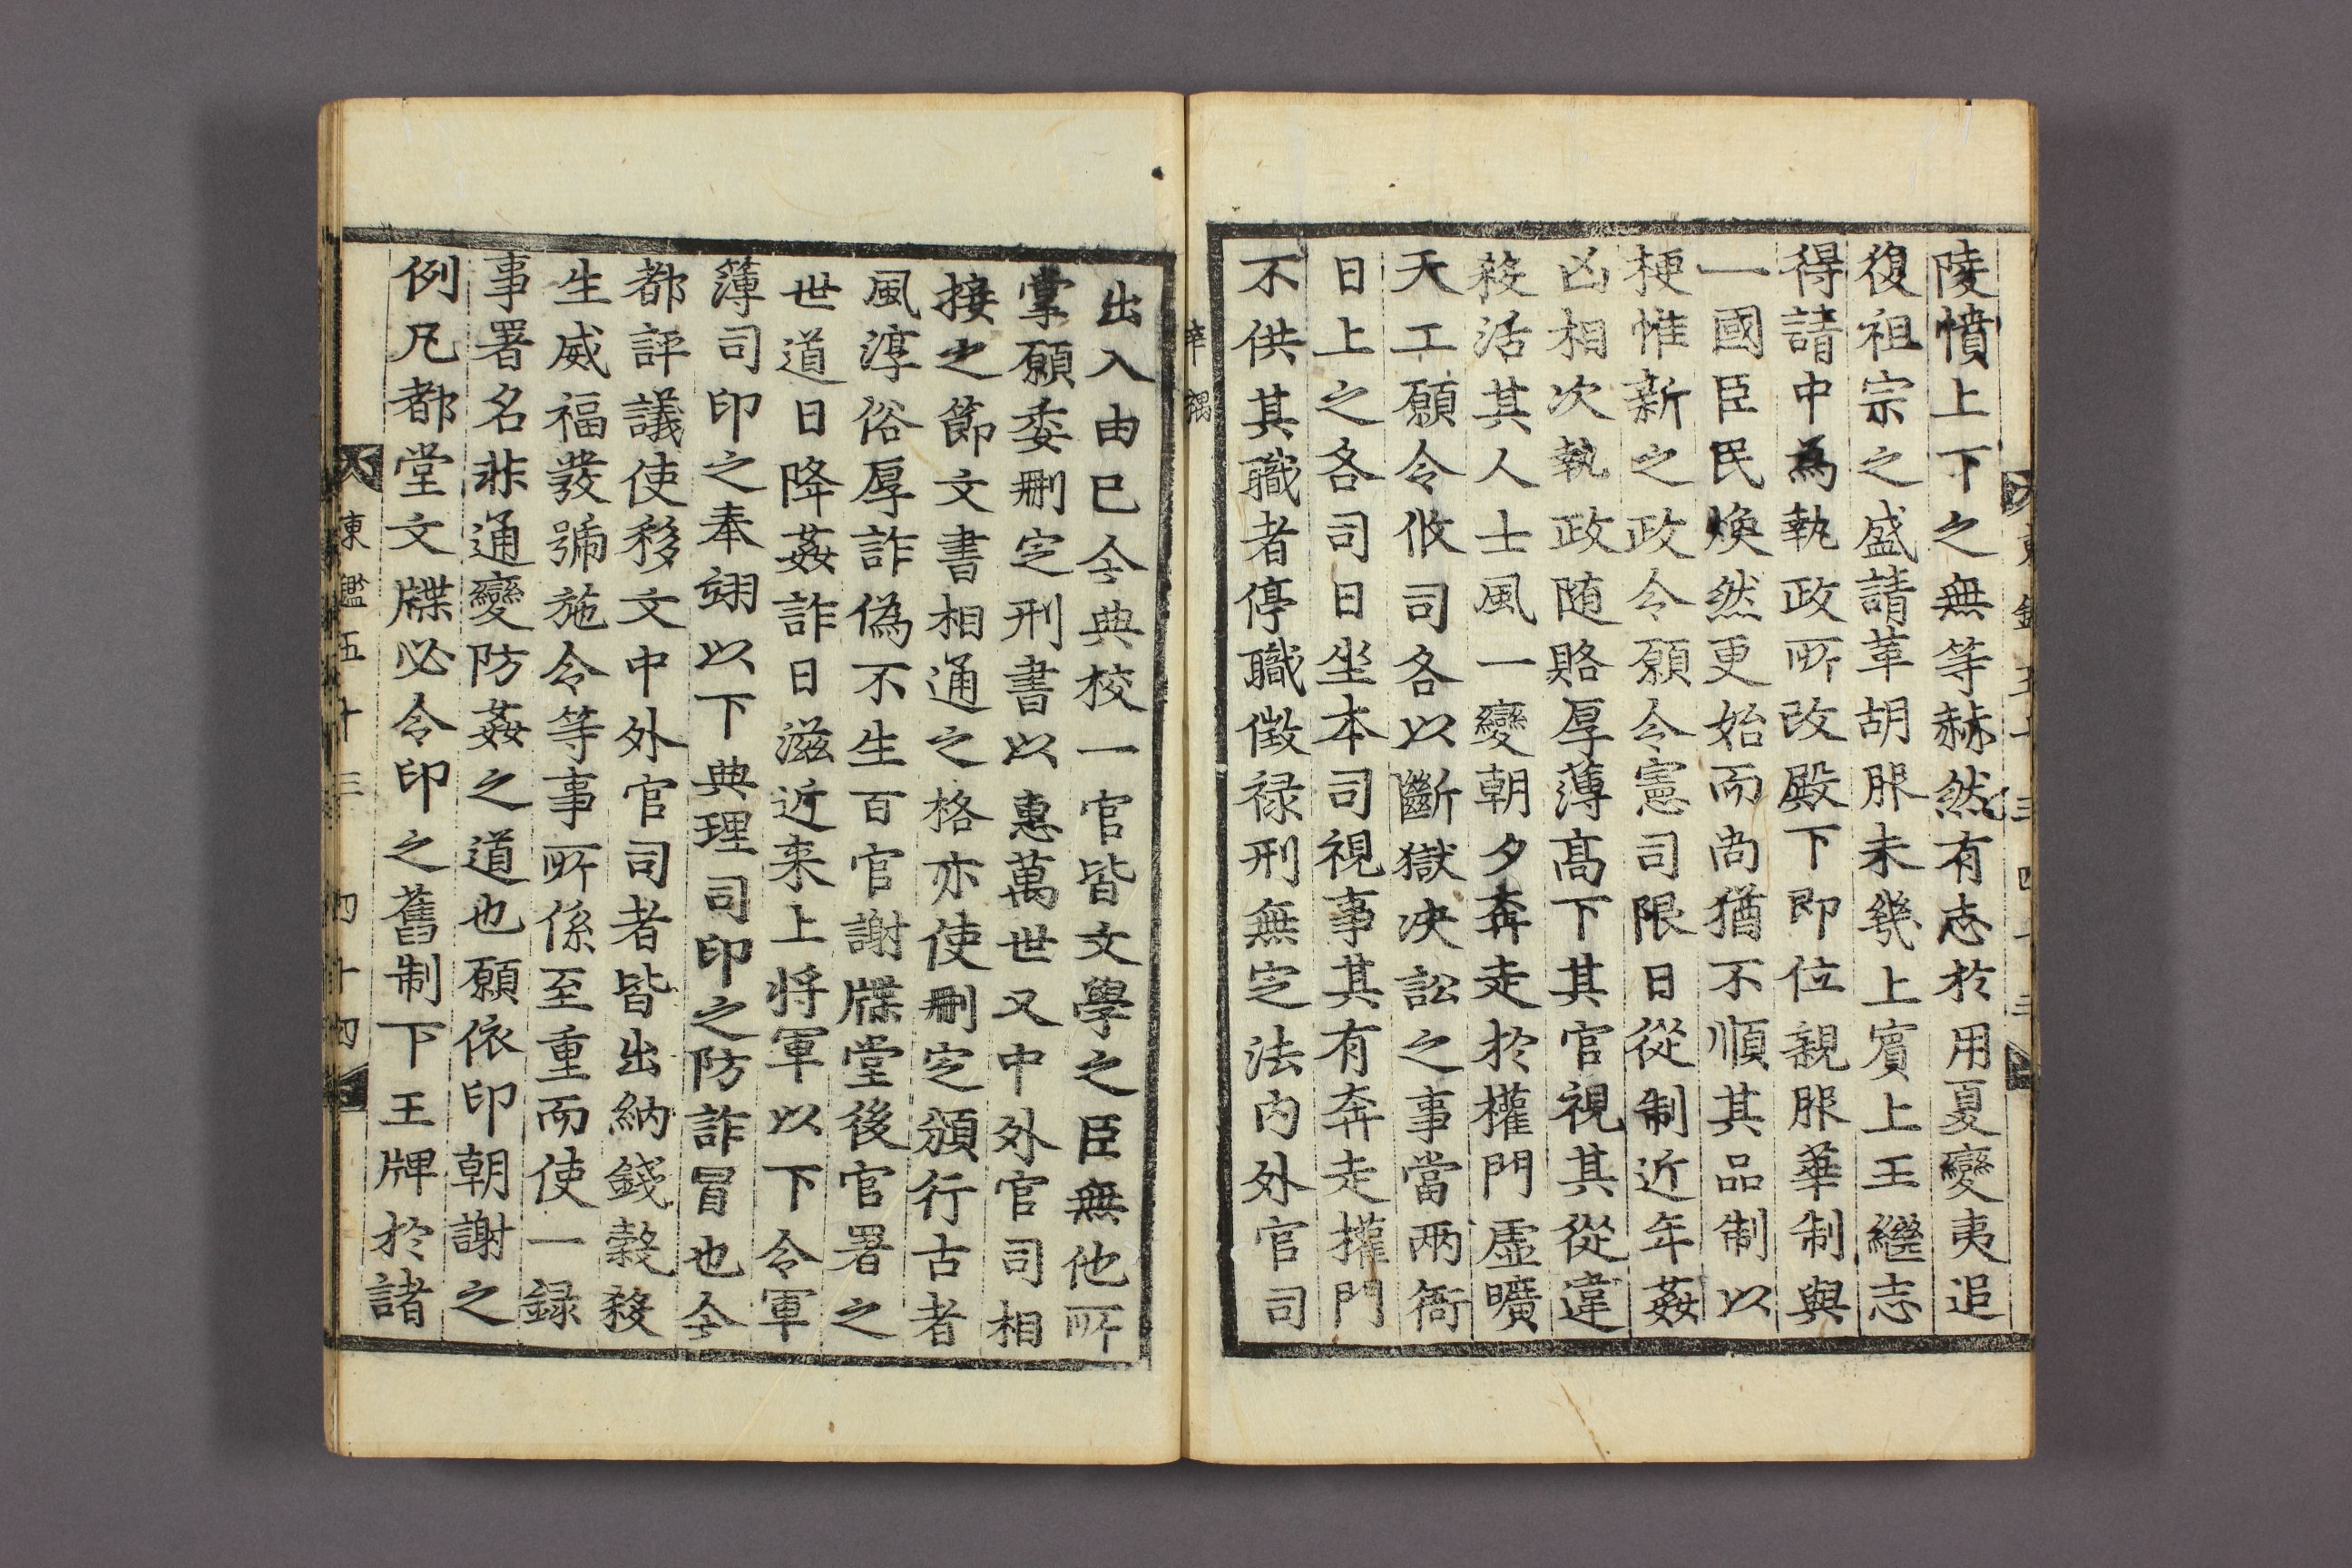 陵憤上下之無等赫然有志於用夏變夷追
復祖宗之盛請革胡服未幾上賓上王繼志
得請中為執政所改殿下即位親服華制與
一國臣民煥然更始而尚猶不順其品制以
梗惟新之政令願令憲司限日從制近年姦
凶相次執政随賂厚薄高下其官視其從違
殺活其人士風一變朝夕奔走於權門虛曠
天工願令攸司各以斷獄决訟之事當兩衙
日上之各司日坐本司視事其有奔走權門
不供其職者停職徵禄刑無定法内外官司
辛禑
出入由已今典校一官皆文學之臣無他所
掌願委刪定刑書以惠萬世又中外官司相
接之節文書相通之格亦使刪定頒行古者
風淳俗厚詐偽不生百官謝牒堂後官署之
世道日降姦詐日滋近来上将軍以下令軍
簿司印之奉翊以下典理司印之防詐冒也今
都評議使移文中外官司者皆出納錢穀殺
生威福發號施令等事所係至重而使一録
事署名非通變防姦之道也願依印朝謝之
例凡都堂文牒必令印之舊制下王牌於諸
東鑑五十三 四十四